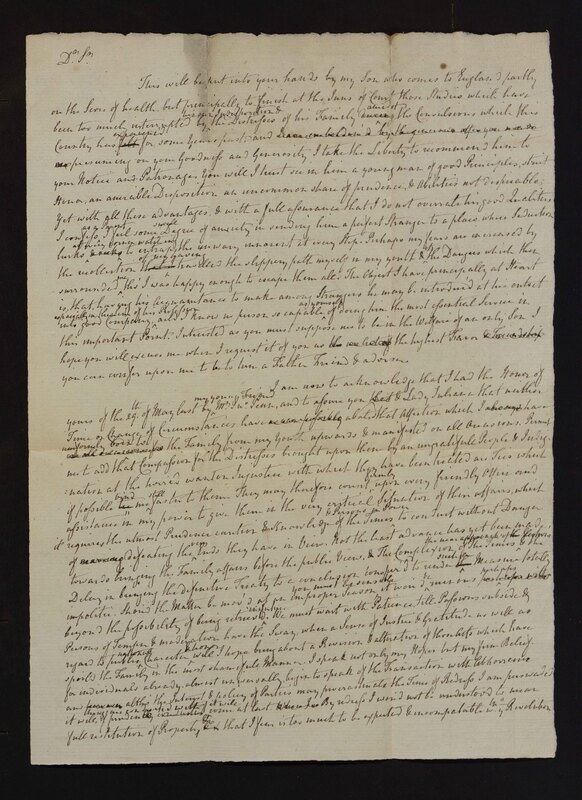 Dr. Sr.
This will be put into your hands by my Son who comes to England partly
on the Score of health but principally to finish at the Inns of Court those Studies which have
been too much interrupted by the Distresses of his Family during the Convulsions which this
Country has for some Years past; and
presuming on your Goodness and Generosity I take the Liberty to recommend him to
your Notice and Patronage. You will I trust see in him a young man of good Principles, strict
Honor, an amiable Disposition an uncommon share of prudence, & Abilities not despicable;
Yet with all these advantages & with a full assurance that I do not overrate his good Qualities
I confess I feel some Degree of anxiety in sending him a perfect Stranger to a place where Seduction
lurks to entrap the unwary, innocent at every Step. Perhaps my fears are increased by
the recollection of my having travelled the slippery path myself in my youth & of the Dangers which then
surrounded, tho' I was happy enough to escape them all. The Object I have principally at Heart
is, that having his Acquaintance to make among Strangers he may be introduced at his outset
into good Company, and I know no person so capable as yourself of doing him the most essential Service in
this important Point. Interested as you must suppose me to be in the Welfare of an only Son I
hope you will excuse me when I request it of you as the highest Favor
you can confer upon me to be to him a Father Friend & adviser.
I am now to acknowledge that I had the Honor of
yours of the 29th of May last by my young Friend Mr. Jno. Penn, and to assure you & Lady Juliana that neither
Time or Change of Circumstances have abated that Affection which I have
uniformly born to the Family from my Youth upwards & manifested on all Occasions. Permit
me to add that Compassion for the Distresses brought upon them by an ungrateful People & Indig-
nation at the horrid wanton Injustice with which they have been treated are Ties which
if possible bind me still faster to them. They may therefore count upon every friendly Office and
assistance in my power to give them in the very critical Situation of their affairs, which
it requires the utmost Prudence caution & Knowledge of the Times to conduct without Danger
of defeating the Ends they have in View. Not the least advance has yet been made
towards bringing the Family affairs before the public View, & the Complexion of the Times & the
Delay in bringing the definitive Treaty to a conclusion conspired to render such a Measure totally
impolitic. Should the Matter be moved at an improper Season, it wou'd
beyond the possibility of being retrieved. We must wait with Patience till Passions subside &
Persons of Temper & moderation have the Sway, when a Sense of Justice & Gratitude as well as
regard to public Character will I hope bring about a Revision & alteration of those Acts which have
spoiled the Family in the most shameful Manner. I speak not only my Hopes but my firm Belief
for individuals already almost universally begin to speak of the Transaction with Abhorrence
and altho the Interest & policy of Parties may procrastinate the Time of Redress I am persuaded
it will, if prudently conducted come at last. By redress I wou'd not be understood to mean
full restitution of Property &c that I fear is too much to be expected & incompatible with ye Revolution